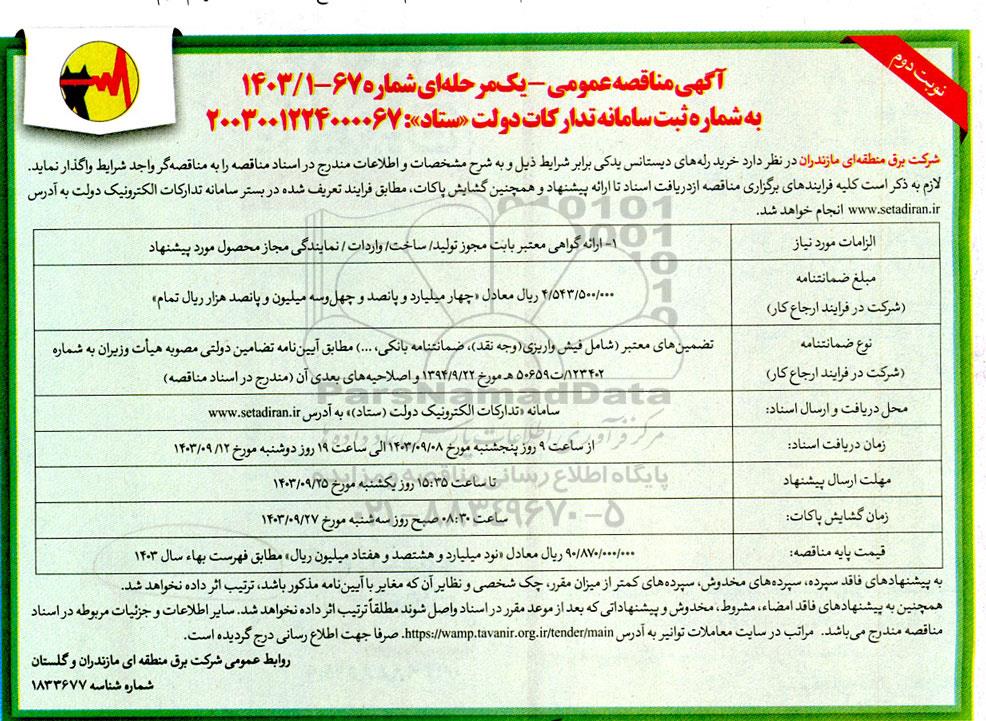 نوبت دوم
آگهی مناقصه عمومی - یک مرحله‌ای شماره ۶۷-۱۴۰۳/۱
به شماره ثبت سامانه تدارکات دولت «ستاد»: ۲۰۰۳۰۰۱۲۲۴۰۰۰۰۶۷
شرکت برق منطقه‌ای مازندران در نظر دارد خرید رله‌های دیستانس یدکی برابر شرایط ذیل و به شرح مشخصات و اطلاعات مندرج در اسناد مناقصه را به مناقصه‌گر واجد شرایط واگذار نماید.
لازم به ذکر است کلیه فرایندهای برگزاری مناقصه ازدریافت اسناد تا ارائه پیشنهاد و همچنین گشایش پاکات، مطابق فرایند تعریف شده در بستر سامانه تدارکات الکترونیک دولت به آدرس
www.setadiran.ir انجام خواهد شد.
الزامات مورد نیاز
۱- ارائه گواهی معتبر بابت مجوز تولید/ ساخت/ واردات / نمایندگی مجاز محصول مورد پیشنهاد
مبلغ ضمانتنامه
(شرکت در فرایند ارجاع کار)
۴/۵۴۳/۵۰۰/۰۰۰ ریال معادل «چهار میلیارد و پانصد و چهل‌وسه میلیون و پانصد هزار ریال تمام»
نوع ضمانتنامه
(شرکت در فرایند ارجاع کار)
تضمین‌های معتبر (شامل فیش واریزی(وجه نقد)، ضمانتنامه بانکی، ...) مطابق آیین‌نامه تضامین دولتی مصوبه هیأت وزیران به شماره
۱۲۳۴۰۲/ت۵۰۶۵۹ هـ مورخ ۱۳۹۴/۹/۲۲ و اصلاحیه‌های بعدی آن (مندرج در اسناد مناقصه)
محل دریافت و ارسال اسناد:
سامانه «تدارکات الکترونیک دولت (ستاد)» به آدرس www.setadiran.ir
زمان دریافت اسناد:
از ساعت ۹ روز پنجشنبه مورخ ۱۴۰۳/۰۹/۰۸ الی ساعت ۱۹ روز دوشنبه مورخ ۱۴۰۳/۰۹/۱۲
مهلت ارسال پیشنهاد
تا ساعت ۱۵:۳۵ روز یکشنبه مورخ ۱۴۰۳/۰۹/۲۵
زمان گشایش پاکات:
ساعت ۰۸:۳۰ صبح روز سه‌شنبه مورخ ۱۴۰۳/۰۹/۲۷
قیمت پایه مناقصه:
۹۰/۸۷۰/۰۰۰/۰۰۰ ریال معادل «نود میلیارد و هشتصد و هفتاد میلیون ریال» مطابق فهرست بهاء سال ۱۴۰۳
به پیشنهادهای فاقد سپرده، سپرده‌های مخدوش، سپرده‌های کمتر از میزان مقرر، چک شخصی و نظایر آن که مغایر با آیین‌نامه مذکور باشد، ترتیب اثر داده نخواهد شد.
همچنین به پیشنهادهای فاقد امضاء، مشروط، مخدوش و پیشنهاداتی که بعد از موعد مقرر در اسناد واصل شوند مطلقاً ترتیب اثر داده نخواهد شد. سایر اطلاعات و جزئیات مربوطه در اسناد
مناقصه مندرج می‌باشد. مراتب در سایت معاملات توانیر به آدرس https://wamp.tavanir.org.ir/tender/main. صرفا جهت اطلاع رسانی درج گردیده است.
روابط عمومی شرکت برق منطقه ای مازندران و گلستان
شماره شناسه ۱۸۳۳۶۷۷
ParsNamadData
پایگاه اطلاع رسانی مناقصه و مزایده
۰۲۱-۸۸۳۴۹۶۷۰-۵